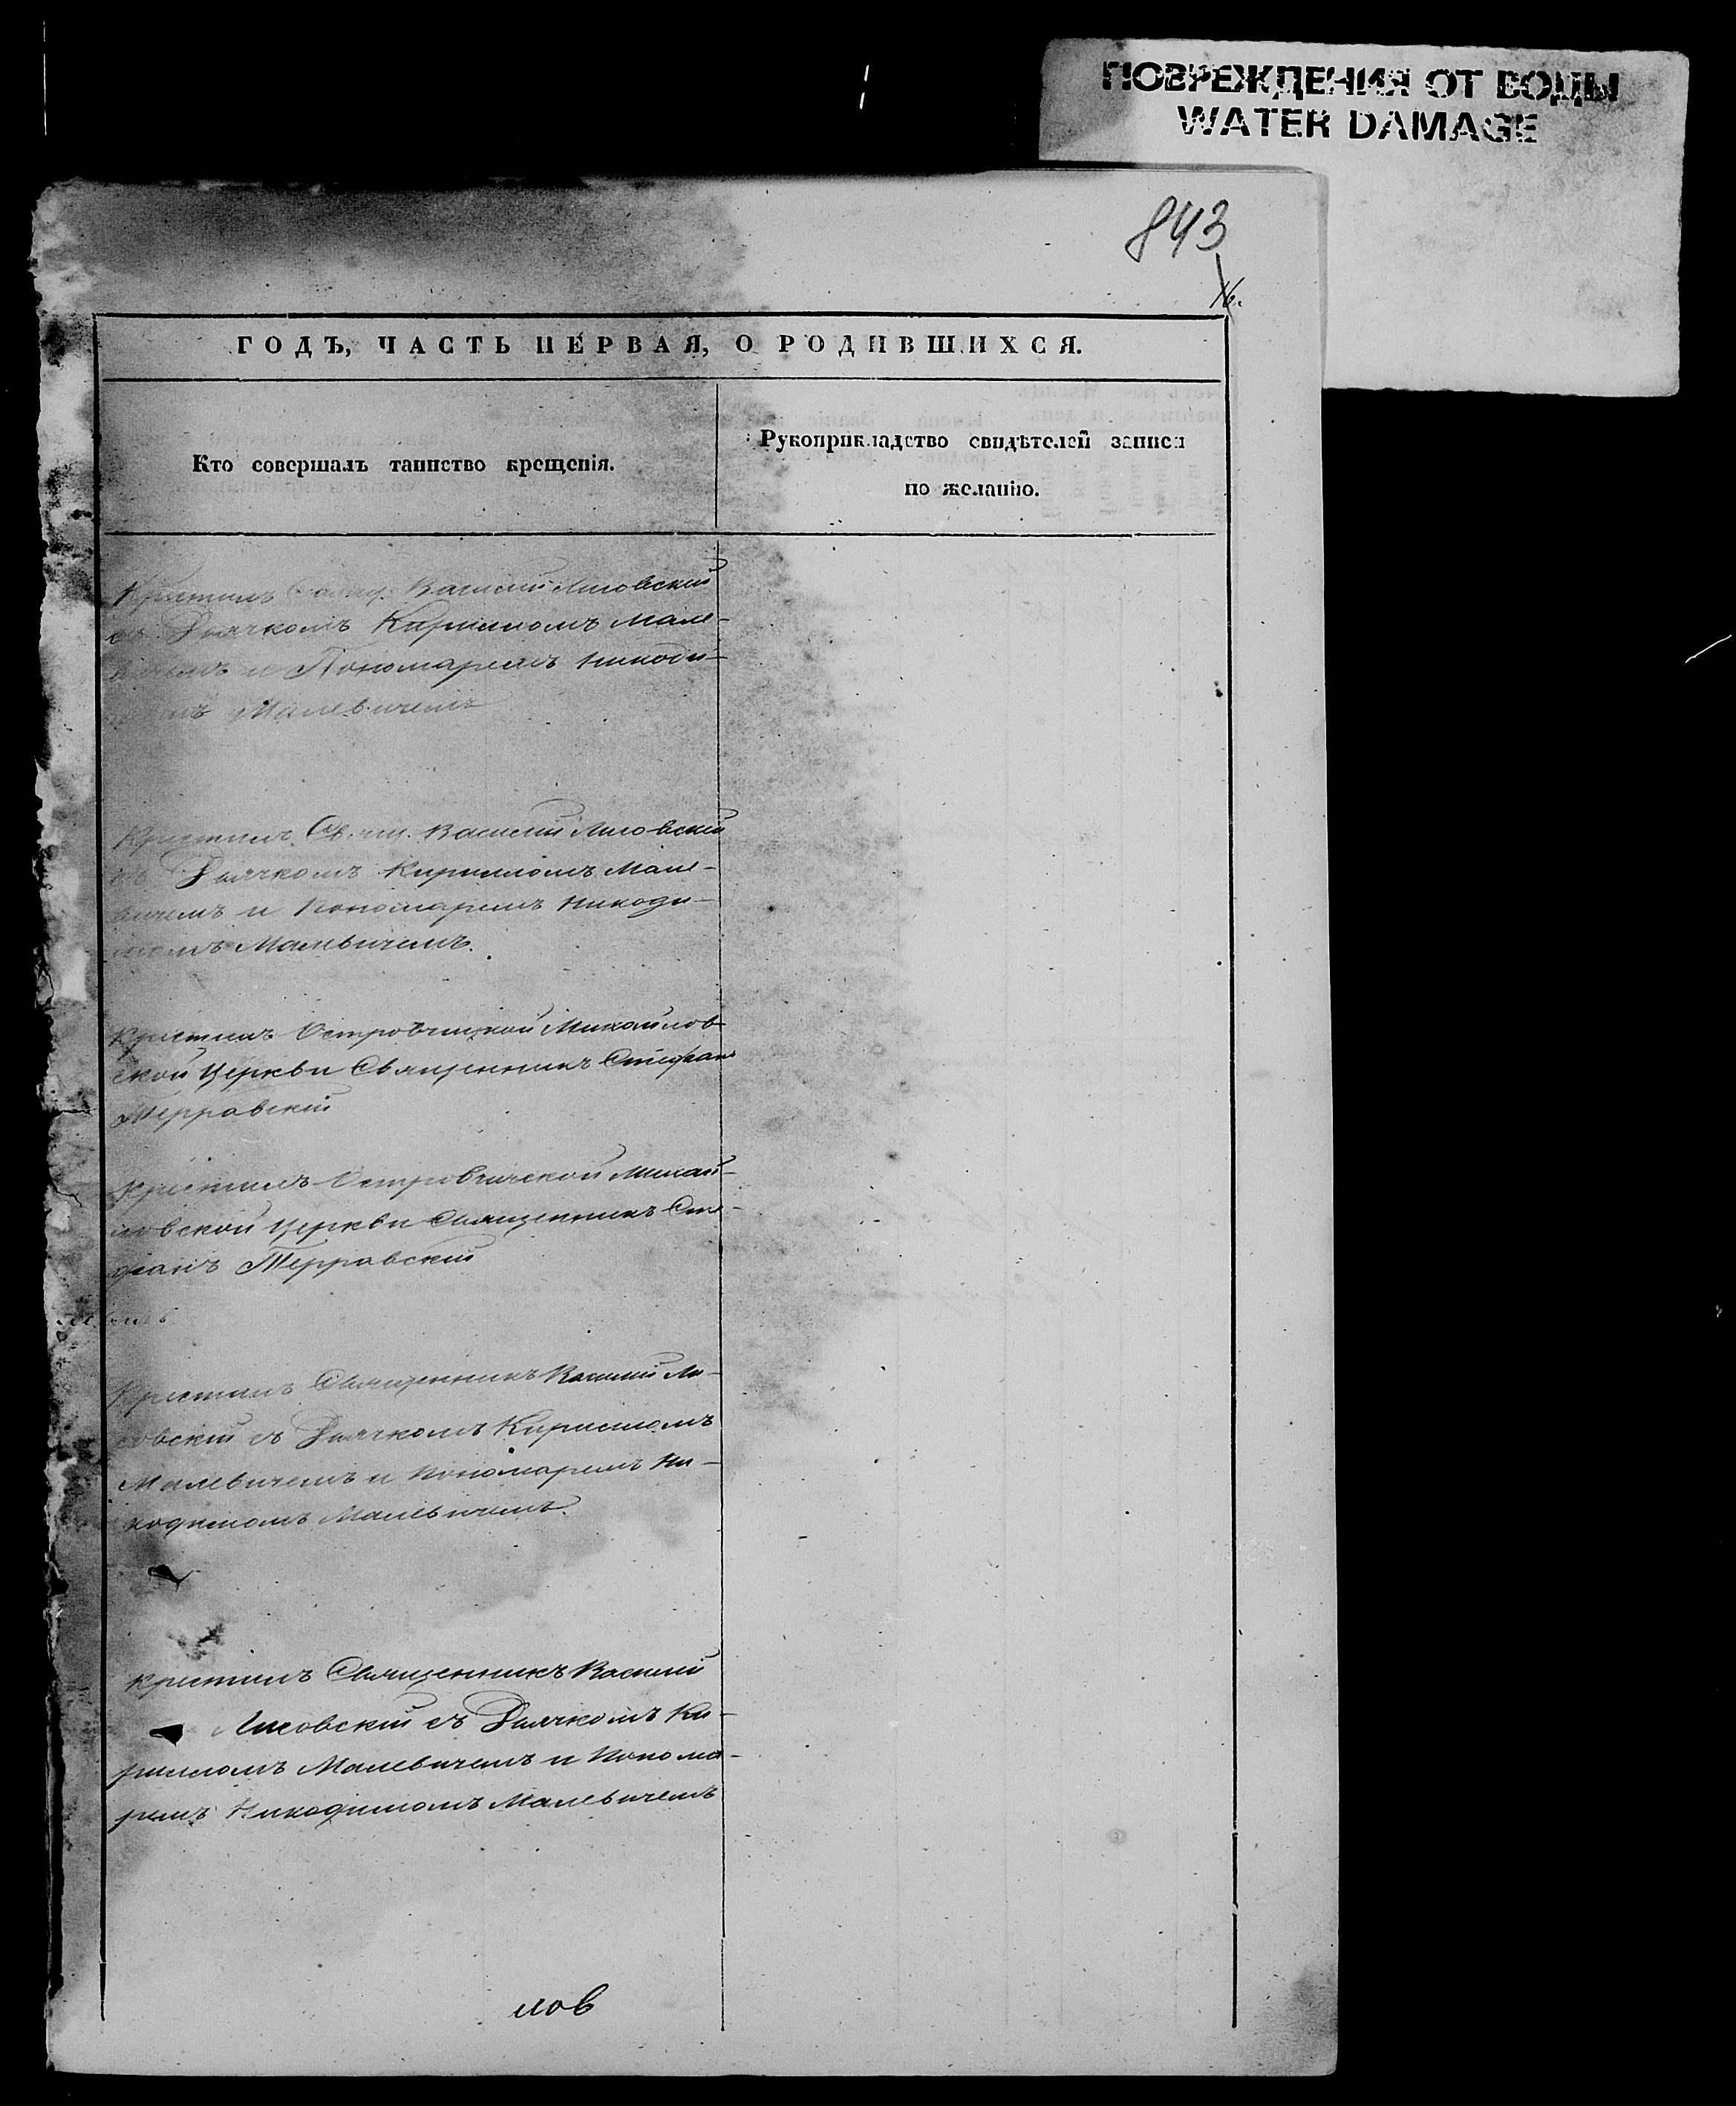 ПОВРЕЖДЕНИЯ ОТ ВОДЫ
WATER DAMAGE
843
ГОДЪ, ЧАСТЬ ПЕРВАЯ, О РОДИВШИХСЯ.
Кто совершалъ таинство крещенія.
Рукоприкладство свидѣтелей записи
по желанію.
Крестилъ Василій Лисовскій
съ Дьячкомъ Кирилломъ Мале-
вичемъ и Пономаремъ Никоди-
момъ Малевичемъ
Крестилъ Свящ. Василій Лисовскій
съ Дьячкомъ Кирилломъ Мале-
вичемъ и Пономаремъ Никоди-
момъ Малевичемъ.
Крестилъ Островчицкой Михайлов-
ской Церкви Священникъ Стефанъ
Крестилъ Островчиской Михай-
ловской Церкви Священникъ Сте-
фанъ
Крестилъ Священникъ Василій Ли-
совскій съ Дьячкомъ Кирилломъ
Малевичемъ и Пономаремъ Ни-
кодимомъ Малевичемъ.
Крестилъ Священникъ Василій
Лисовскій съ Дьячкомъ Ки-
рилломъ Малевичемъ и Понома-
ремъ Никодимомъ Малевичемъ
лов